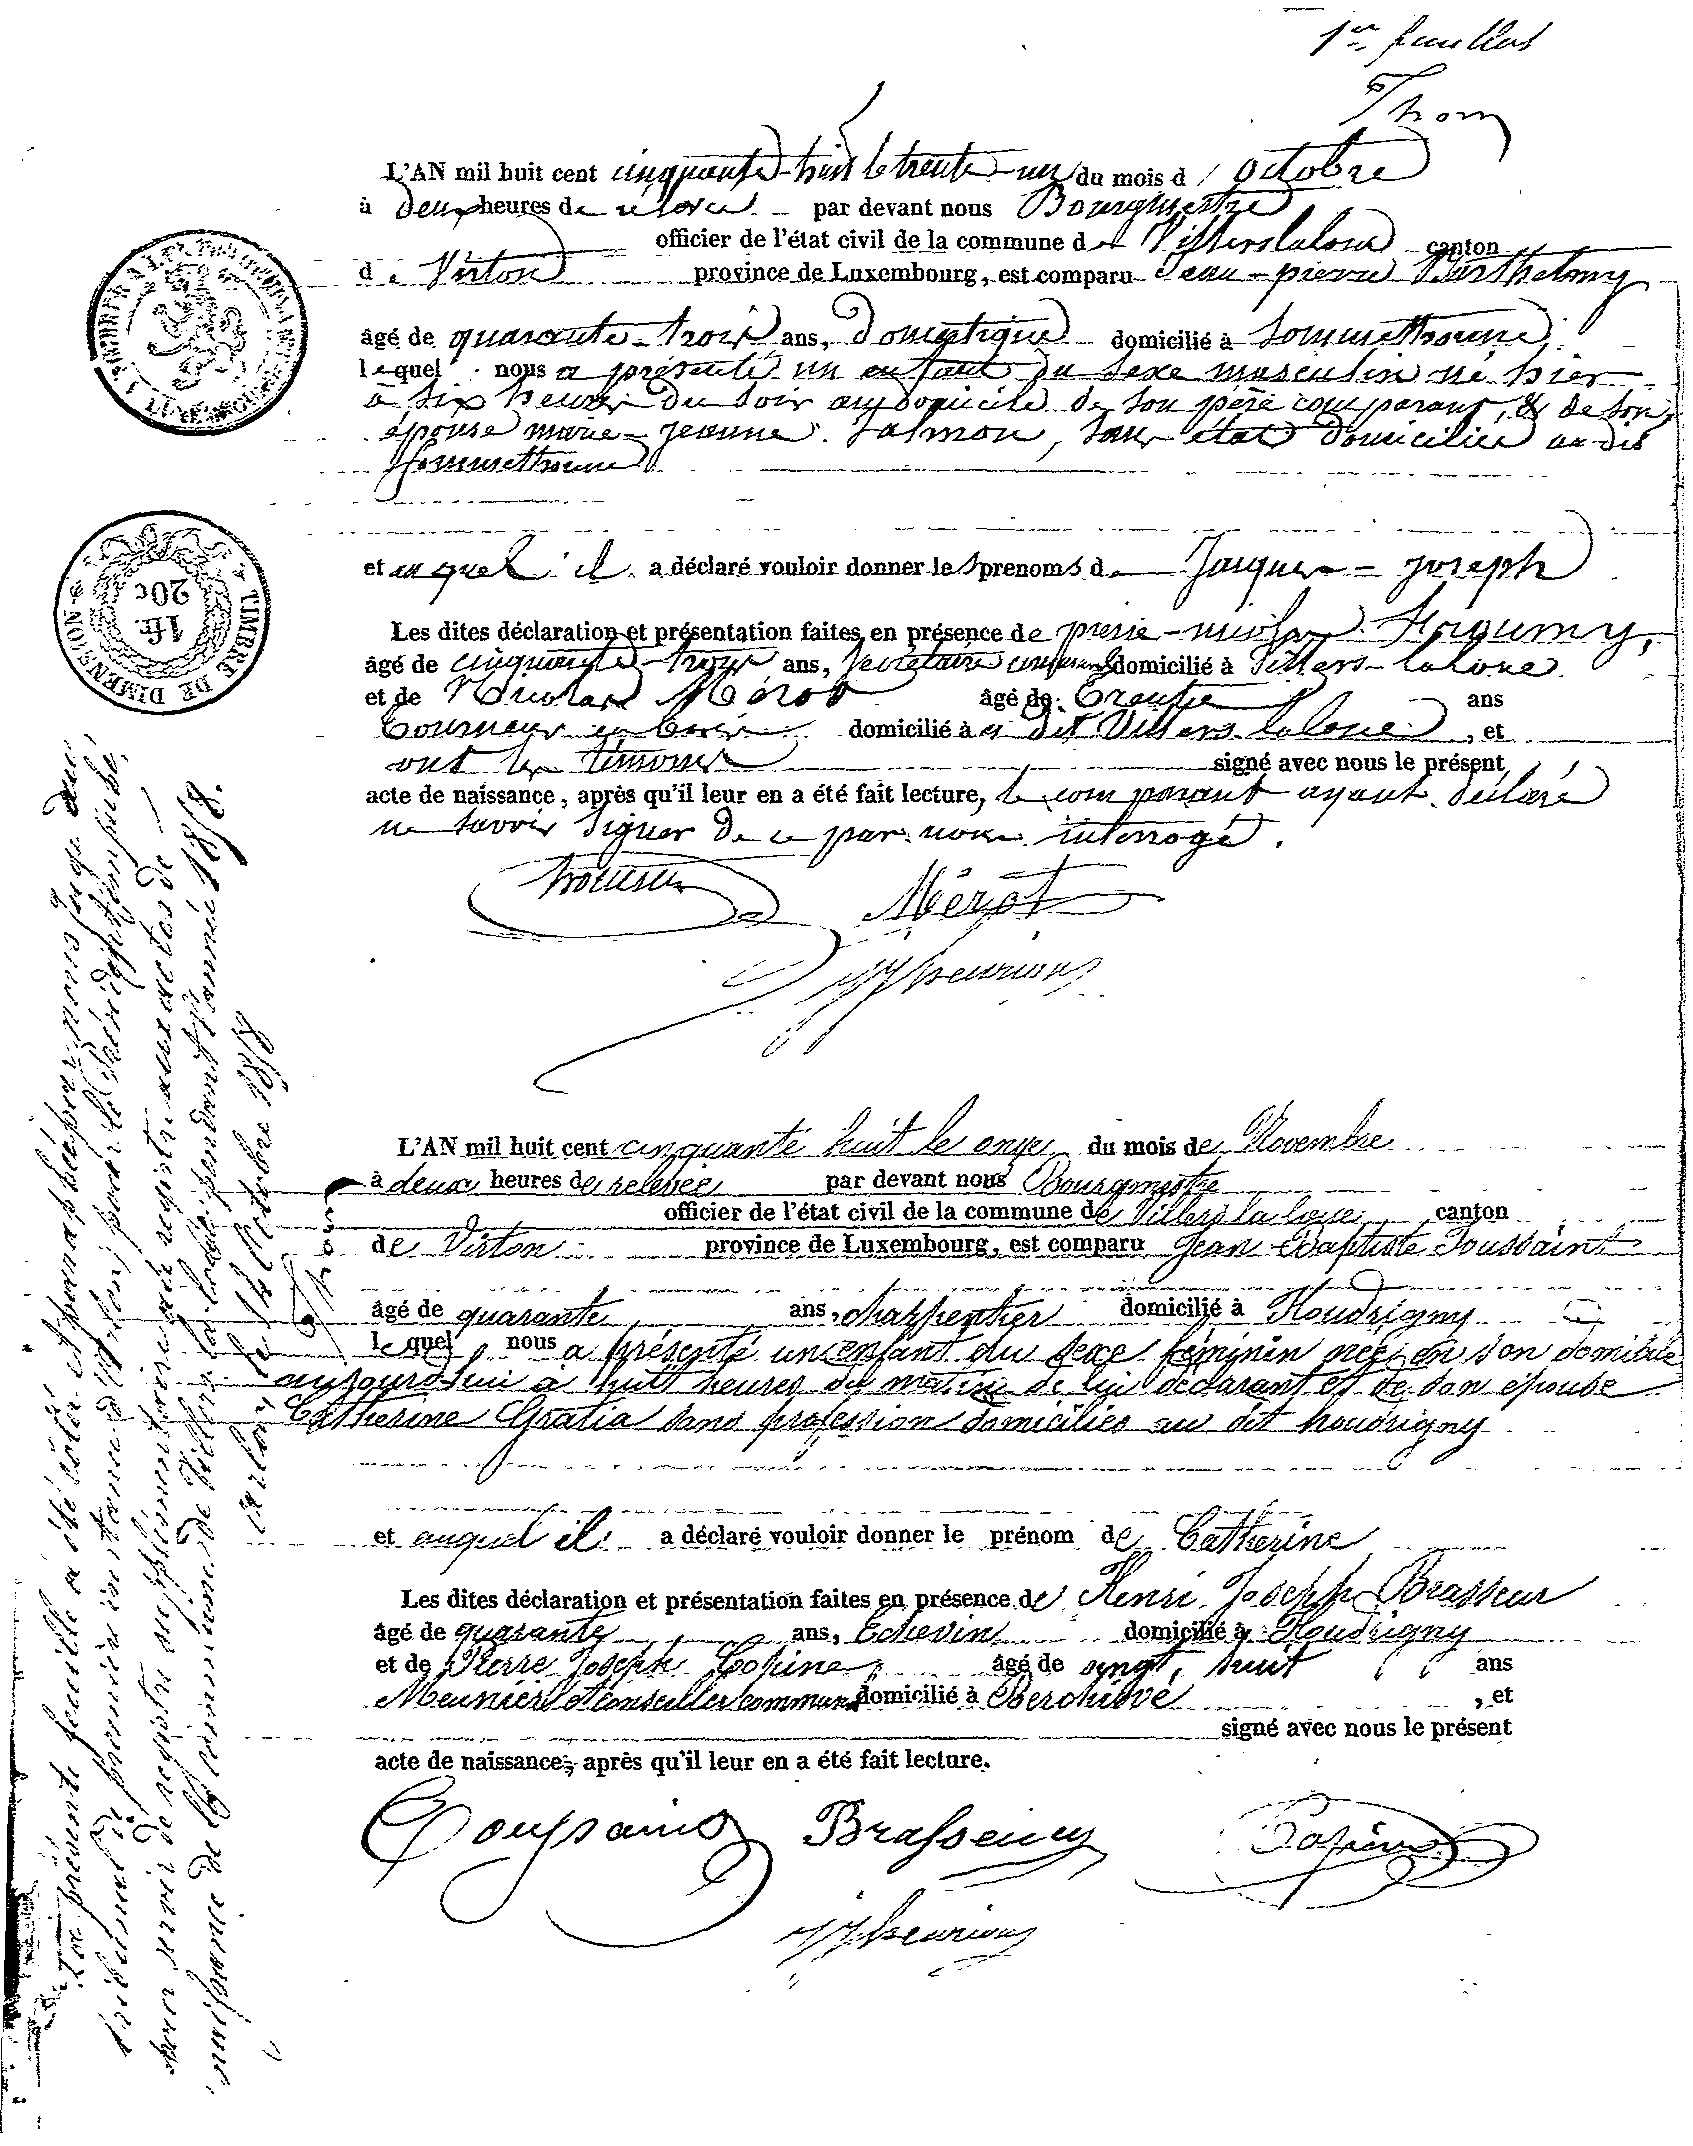 1er feuillet
Thom
L'AN mil huit cent cinquante-huit le trente-un du mois d'octobre
à deux heures de relevée par devant nous Bourgmestre
officier de l'état civil de la commune de Villerslaloue canton
de Virton province de Luxembourg, est comparu Jean-pierre Barthelmy
âgé de quarante-trois ans, domestique domicilié à Sommethonne
lequel nous a présenté un enfant du sexe masculin né hier
à six heures du soir au domicile de son père comparant, & de son
épouse marie-jeanne Salmon, sans état domiciliée au dit
Sommethonne
et auquel il a déclaré vouloir donner les prenoms de Jacques-joseph
Les dites déclaration et présentation faites en présence de pierre-nicolas
âgé de cinquante-trois ans, Secrétaire communal domicilié à Villers-laloue
et de Nicolas Mérot âgé de trente ans
tourneur en bois domicilié à dit Villers-laloue, et
ont les témoins signé avec nous le présent
acte de naissance, après qu'il leur en a été fait lecture, le comparant ayant déclaré
ne savoir signer de ce par nous interrogé.
Mérot
L'AN mil huit cent cinquante huit le onze du mois de Novembre
à deux heures de relevée par devant nous Bourgmestre
officier de l'état civil de la commune de Villers la loue canton
de Virton province de Luxembourg, est comparu Jean Baptiste Toussaint
âgé de quarante ans, charpentier domicilié à Houdrigny
lequel nous a présenté un enfant du sexe féminin née en son domicile
aujourd'hui à huit heures du matin de lui déclarant et de son épouse
Catherine Gratia sans profession domiciliés au dit houdrigny
et auquel il a déclaré vouloir donner le prénom de Catherine
Les dites déclaration et présentation faites en présence de Henri Joseph Brasseur
âgé de quarante ans, Echevin domicilié à Houdrigny
et de Pierre Joseph Copine âgé de vingt huit ans
Meunier et conseiller communal domicilié à Berchivé, et
signé avec nous le présent
acte de naissance, après qu'il leur en a été fait lecture.
Toussaint Brasseur Copine
TIMBRE DE DIMENSION
1fr.
20c
La présente feuille a été cotée et paraphée par nous juge au
tribunal de première instance d'Arlon, pour le président empêché,
pour servir de registre supplémentaire au registre aux actes de
naissance de la commune de Villers la loue pendant l'année 1858.
Arlon, le 14 octobre 1858